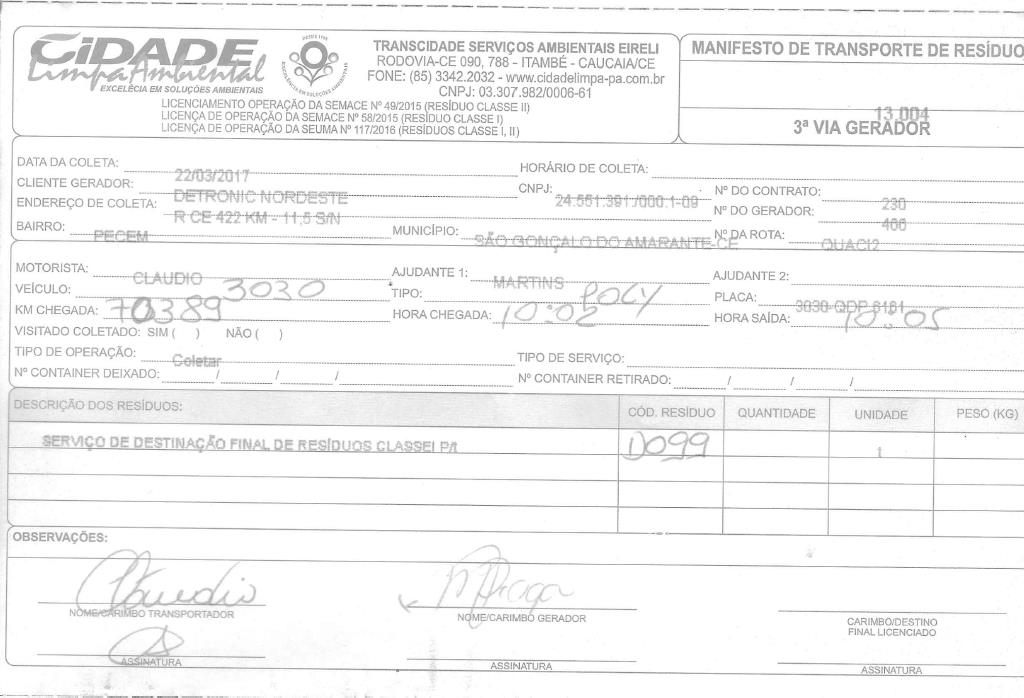 CIDADE
Limpa Ambiental
EXCELÊCIA EM SOLUÇÕES AMBIENTAIS
TRANSCIDADE SERVIÇOS AMBIENTAIS EIRELI
RODOVIA-CE 090, 788 - ITAMBÉ - CAUCAIA/CE
FONE: (85) 3342.2032 - www.cidadelimpa-pa.com.br
CNPJ: 03.307.982/0006-61
LICENCIAMENTO OPERAÇÃO DA SEMACE Nº 49/2015 (RESÍDUO CLASSE II)
LICENÇA DE OPERAÇÃO DA SEMACE Nº 58/2015 (RESÍDUO CLASSE I)
LICENÇA DE OPERAÇÃO DA SEUMA Nº 117/2016 (RESÍDUOS CLASSE I, II)
MANIFESTO DE TRANSPORTE DE RESÍDUO
13.004
3ª VIA GERADOR
DATA DA COLETA: 22/03/2017 HORÁRIO DE COLETA:
CLIENTE GERADOR: DETRONIC NORDESTE CNPJ: 24.551.391/000.1-09 Nº DO CONTRATO: 230
ENDEREÇO DE COLETA: R CE 422 KM - 11,5 S/N Nº DO GERADOR: 406
BAIRRO: PECEM MUNICÍPIO: SÃO GONÇALO DO AMARANTE-CE Nº DA ROTA: QUACI2
MOTORISTA: CLAUDIO AJUDANTE 1: MARTINS AJUDANTE 2:
VEÍCULO: 3030 TIPO: POLY PLACA: 3030-QDP 6161
KM CHEGADA: 70389 HORA CHEGADA: 10:02 HORA SAÍDA: 10:05
VISITADO COLETADO: SIM ( ) NÃO ( )
TIPO DE OPERAÇÃO: Coletar TIPO DE SERVIÇO:
Nº CONTAINER DEIXADO: / / / Nº CONTAINER RETIRADO: / / /
DESCRIÇÃO DOS RESÍDUOS: CÓD. RESÍDUO QUANTIDADE UNIDADE PESO (KG)
SERVIÇO DE DESTINAÇÃO FINAL DE RESÍDUOS CLASSEI P/I D099 t
OBSERVAÇÕES:
Claudio
NOME/CARIMBO TRANSPORTADOR NOME/CARIMBO GERADOR CARIMBO/DESTINO
FINAL LICENCIADO
ASSINATURA ASSINATURA ASSINATURA